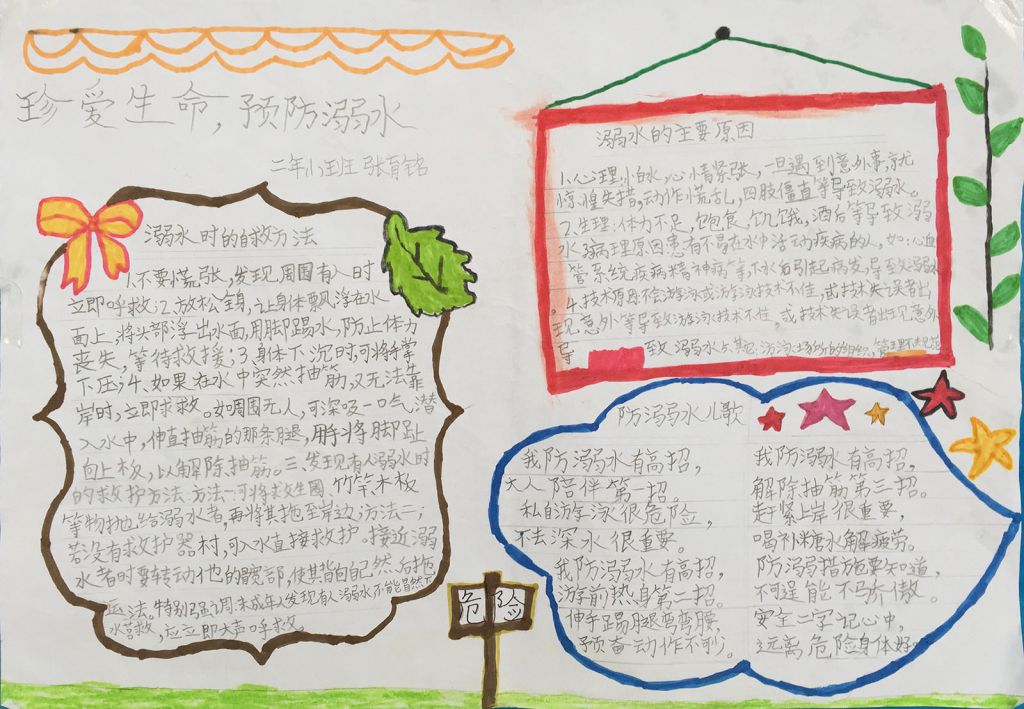 珍爱生命,预防溺水
二年八班 张育铭
溺水时的自救方法
1.不要慌张,发现周围有人时
立即呼救;2.放松全身,让身体飘浮在水
面上,将头部浮出水面,用脚踢水,防止体力
丧失,等待救援;3.身体下沉时,可将手掌
下压;4.如果在水中突然抽筋,又无法靠
岸时,立即求救。如周围无人,可深吸一口气潜
入水中,伸直抽筋的那条腿,用手将脚趾
向上板,以解除抽筋。三、发现有人溺水时
的救护方法.方法一:可将救生圈,竹竿,木板
等物抛给溺水者,再将其拖至岸边;方法二:
若没有救护器材,可入水直接救护。接近溺
水者时要转动他的髋部,使其背向自己然后拖
运法。特别强调:未成年人发现有人溺水不能冒然下
水营救,应立即大声呼救。
溺水的主要原因
1.心理:怕水,心情紧张,一旦遇到意外事,就
惊惶失措,动作慌乱,四肢僵直等导致溺水。
2.生理:体力不足,饱食,饥饿,酒后等导致溺
水3.病理原因患有不易在水中活动疾病的人,如:心血
管系统疾病精神病等,下水后引起病发,导致溺水
。4.技术原因不会游泳或游泳技术不佳,或技术失误者出
现意外等导致游泳技术不佳,或技术失误者出现意外
导 致溺水5.其它:游泳
防溺水儿歌
我防溺水有高招,
大人陪伴第一招。
私自游泳很危险,
不去深水很重要。
我防溺水有高招,
游前热身第二招。
伸手踢腿要弯腰,
预备动作不可少。
我防溺水有高招,
解除抽筋第三招。
赶紧上岸很重要,
喝补糖水解疲劳。
防溺弱措施要知道,
不可逞能不骄傲。
安全二字记心中,
远离危险身体好。
危险